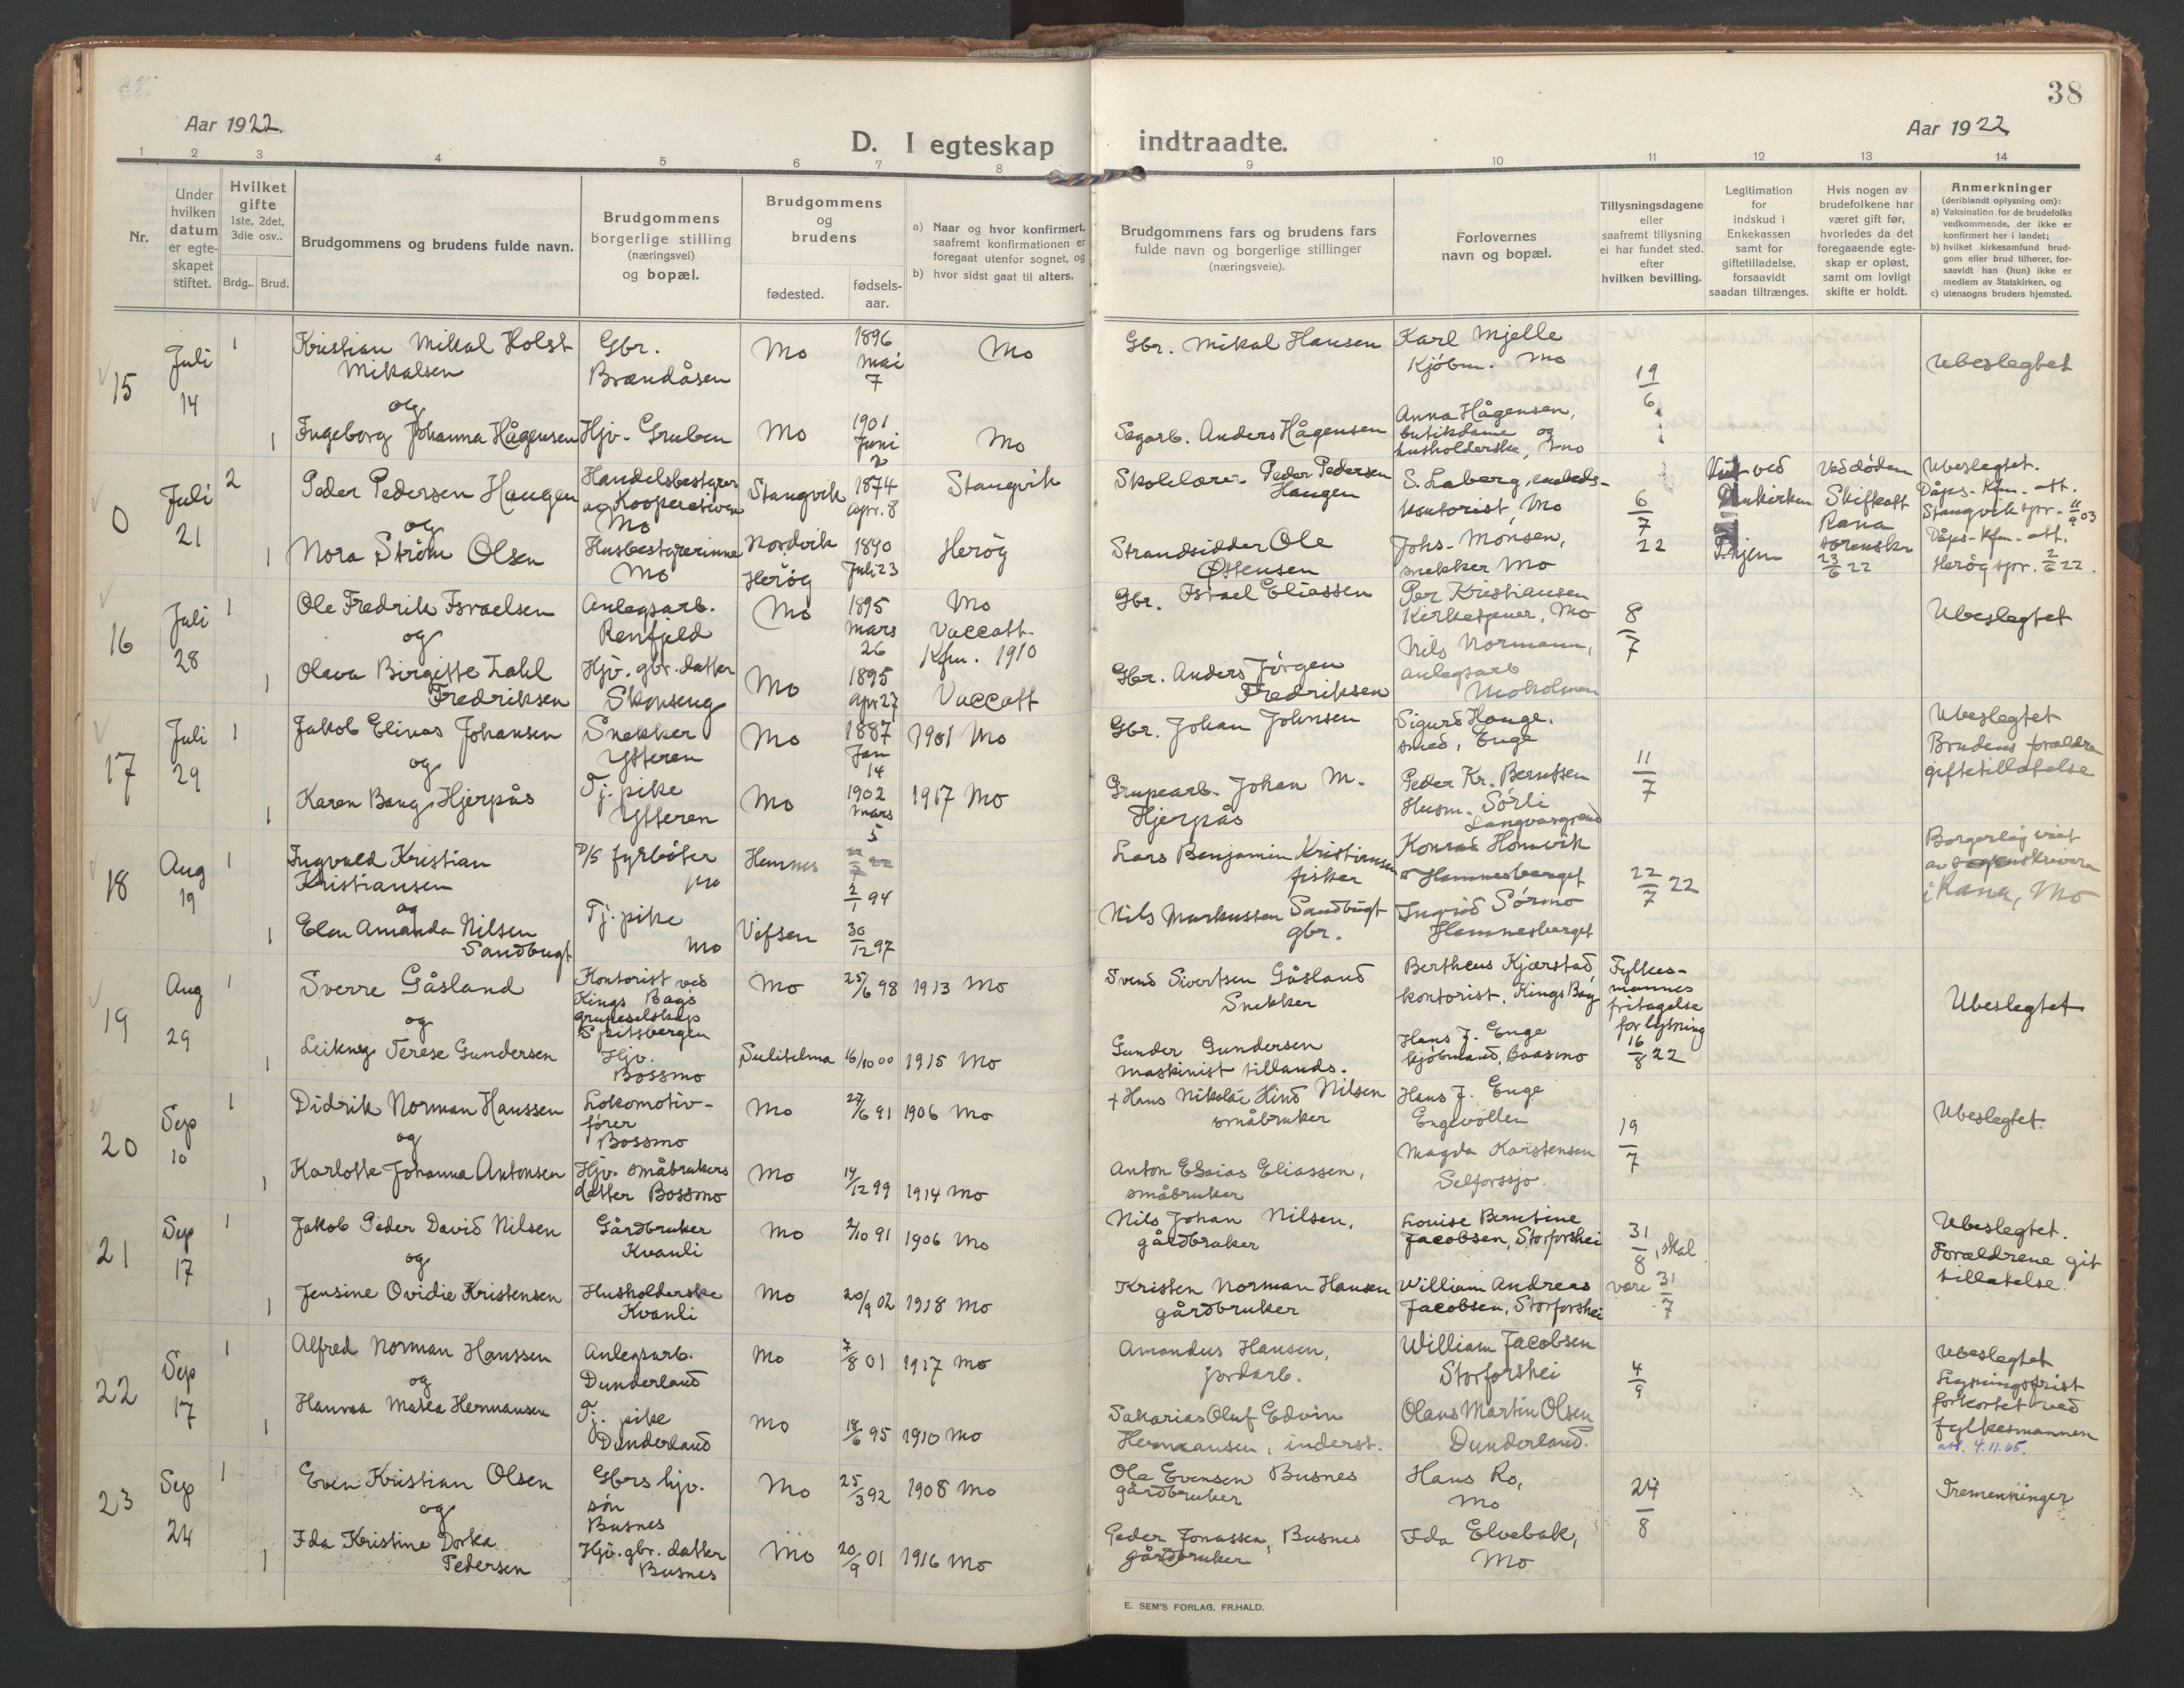 38
Aar 1922.
Aar 1922
D. I egteskap indtraadte.
1 2 3 4 5 6 7 8 9 10 11 12 13 14
Nr.
Under hvilken datum er egteskapet stiftet.
Hvilket gifte 1ste, 2det, 3die osv..
Brdg.. Brud.
Brudgommens og brudens fulde navn.
Brudgommens borgerlige stilling (næringsvei) og bopæl.
Brudgommens og brudens
fødested.
fødsels-aar.
a) Naar og hvor konfirmert, saafremt konfirmationen er foregaat utenfor sognet, og
b) hvor sidst gaat til alters.
Brudgommens fars og brudens fars fulde navn og borgerlige stillinger (næringsveie).
Forlovernes navn og bopæl.
Tillysningsdagene eller saafremt tillysning ei har fundet sted, efter hvilken bevilling.
Legitimation for indskud i Enkekassen samt for giftetilladelse, forsaavidt saadan tiltrænges.
Hvis nogen av brudefolkene har været gift før, hvorledes da det foregaaende egteskap er opløst, samt om lovligt skifte er holdt.
Anmerkninger
(deriblandt oplysning om):
a) Vaksination for de brudefolks vedkommende, der ikke er konfirmert her i landet;
b) hvilket kirkesamfund brudgom eller brud tilhører, forsaavidt han (hun) ikke er medlem av Statskirken, og
c) utensogns bruders hjemsted.
15 Juli 14 1 Kristian Mikal Holst Mikalsen Gbr. Brændåsen Mo 1896 Mai 7 Mo Gbr. Mikal Hansen Karl Mjelle Kjöbm. Mo 19/6 Ubeslegtet
og
1 Ingeborg Johanna Hågensen Hjv. Gruben Mo 1901 Juni 2 Mo Sagarb. Anders Hågensen Anna Hågensen, butikdame og husholderske, Mo
0 Juli 21 2 Peder Pedersen Haugen Handelsbestyrer Kooperativen Mo Stangvik 1874 Apr. 8 Stangvik Skolelærer Peder Pedersen Haugen S. Laberg, kontorist, Mo 6/7 22 ved døden Skifteatt Rana sorenskr 23/6 22 Ubeslegtet. Dåps- Kfm. att. Stangvik spr. 11/9 03
og
1 Nora Ström Olsen Husbestyrerinne Mo Nordvik Heröy 1890 Juli 23 Heröy Strandsidder Ole Ottensen Johs. Monsen, snekker Mo Dåps- Kfm. att. Heröy spr. 2/6 22.
16 Juli 28 1 Ole Fredrik Israelsen Anlegsarb. Renfjeld Mo 1895 Mars 26 Mo Vaccatt. Kfm. 1910 Gbr. Israel Eliassen Per Kristiansen Kirketjener, Mo 8/7 Ubeslegtet
og
1 Olava Birgitte Zahl Fredriksen Hjv. gbr. datter Skonseng Mo 1895 Apr 27 Vaccatt Gbr. Anders Jörgen Fredriksen Nils Normann, anlegsarb Moholmen
17 Juli 29 1 Jakob Elinas Johansen Snekker Ytteren Mo 1887 Jan 14 1901 Mo Gbr. Johan Johnsen Sigurd Hauge, smed, Enge 11/7 Ubeslegtet Brudens forældre giftetillatelse
og
1 Karen Bang Hjerpås Tj. pike Ytteren Mo 1902 Mars 5 1917 Mo Grupearb. Johan M. Hjerpås Peder Kr. Berntsen Husm. Sörli Langvasgrend
18 Aug 19 1 Ingvald Kristian Kristiansen D/S fyrböter Mo Hemnes 2/1 94 Lars Benjamin Kristiansen fisker Konrad Homvik Hemnesberget 22/7 22 Borgerlig viet av sorenskriveren i Rana, Mo
og
1 Elen Amanda Nilsen Sandbugt Tj. pike Mo Vefsen 30/12 97 Nils Markussen Sandbugt gbr. Ingrid Sörmo Hemnesberget
19 Aug 29 1 Sverre Gåsland Kontorist ved Kings Bays grupeselskap Spitsbergen Mo 25/6 98 1913 Mo Svend Sivertsen Gåsland Snekker Bertheus Kjærstad, kontorist, Kings Bay Fylkesmannes fritagelse for lysning 16/8 22 Ubeslegtet
og
1 Leikny Terese Gundersen Hjv. Bossmo Sulitelma 16/10 00 1915 Mo Gunder Gundersen maskinist tillands. Hans J. Enge kjöbmand, Baasmo
20 Sep 10 1 Didrik Norman Hanssen Lokomotivförer Bossmo Mo 27/6 91 1906 Mo + Hans Nikolai Hind Nilsen småbruker Hans J. Enge Engevollen 19/7 Ubeslegtet.
og
1 Karlotte Johanna Antonsen Hjv. småbrukers datter Bossmo Mo 14/12 99 1914 Mo Anton Esaias Eliassen, småbruker Magda Karstensen Selforssjo.
21 Sep 17 1 Jakob Peder David Nilsen Gårdbruker Kvanli Mo 2/10 91 1906 Mo Nils Johan Nilsen, gårdbruker Louise Berntine Jacobsen, Storforshei 31/8, skal være 31/7 Ubeslegtet. Forældrene git tillatelse.
og
1 Jensine Ovidie Kristensen Husholderske Kvanli Mo 20/9 02 1918 Mo Kristen Norman Hansen gårdbruker William Andreas Jacobsen, Storforshei
22 Sep 17 1 Alfred Norman Hanssen Anlegsarb. Dunderland Mo 7/8 01 1917 Mo Amandus Hansen, jordarb. William Jacobsen Storforshei 4/9 Ubeslegtet Lysningsfrist forkortet ved fylkesmannen att. 4.11.65.
og
1 Hanna Matea Hermansen Tj. pike Dunderland Mo 18/6 95 1910 Mo Sakarias Oluf Edvin Hermansen, inderst. Olaus Martin Olsen Dunderland.
23 Sep 24 1 Even Kristian Olsen Gbrs hjv. sön Busnes Mo 25/3 92 1908 Mo Ole Evensen Busnes gårdbruker Hans Ro, Mo 24/8 Tremenninger
og
1 Ida Kristine Dorka Pedersen Hjv. gbr. datter Busnes Mo 20/9 01 1916 Mo Peder Jonassen, Busnes gårdbruker Ida Elvebak, Mo
E. SEM'S FORLAG, FR.HALD.